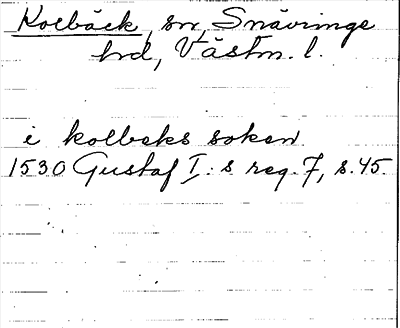 Kolbäck, sn, Snävringe
hd, Västm. l.
i kolbeks soken
1530 Gustaf I:s reg. 7, s. 45.